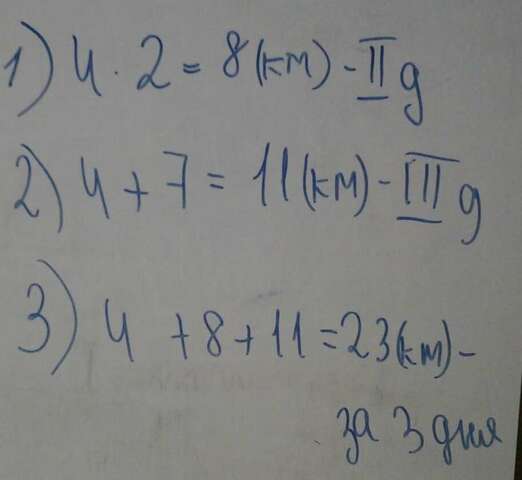 1) 4 · 2 = 8 (км) - II д
2) 4 + 7 = 11 (км) - III д
3) 4 + 8 + 11 = 23 (км) -
за 3 дня